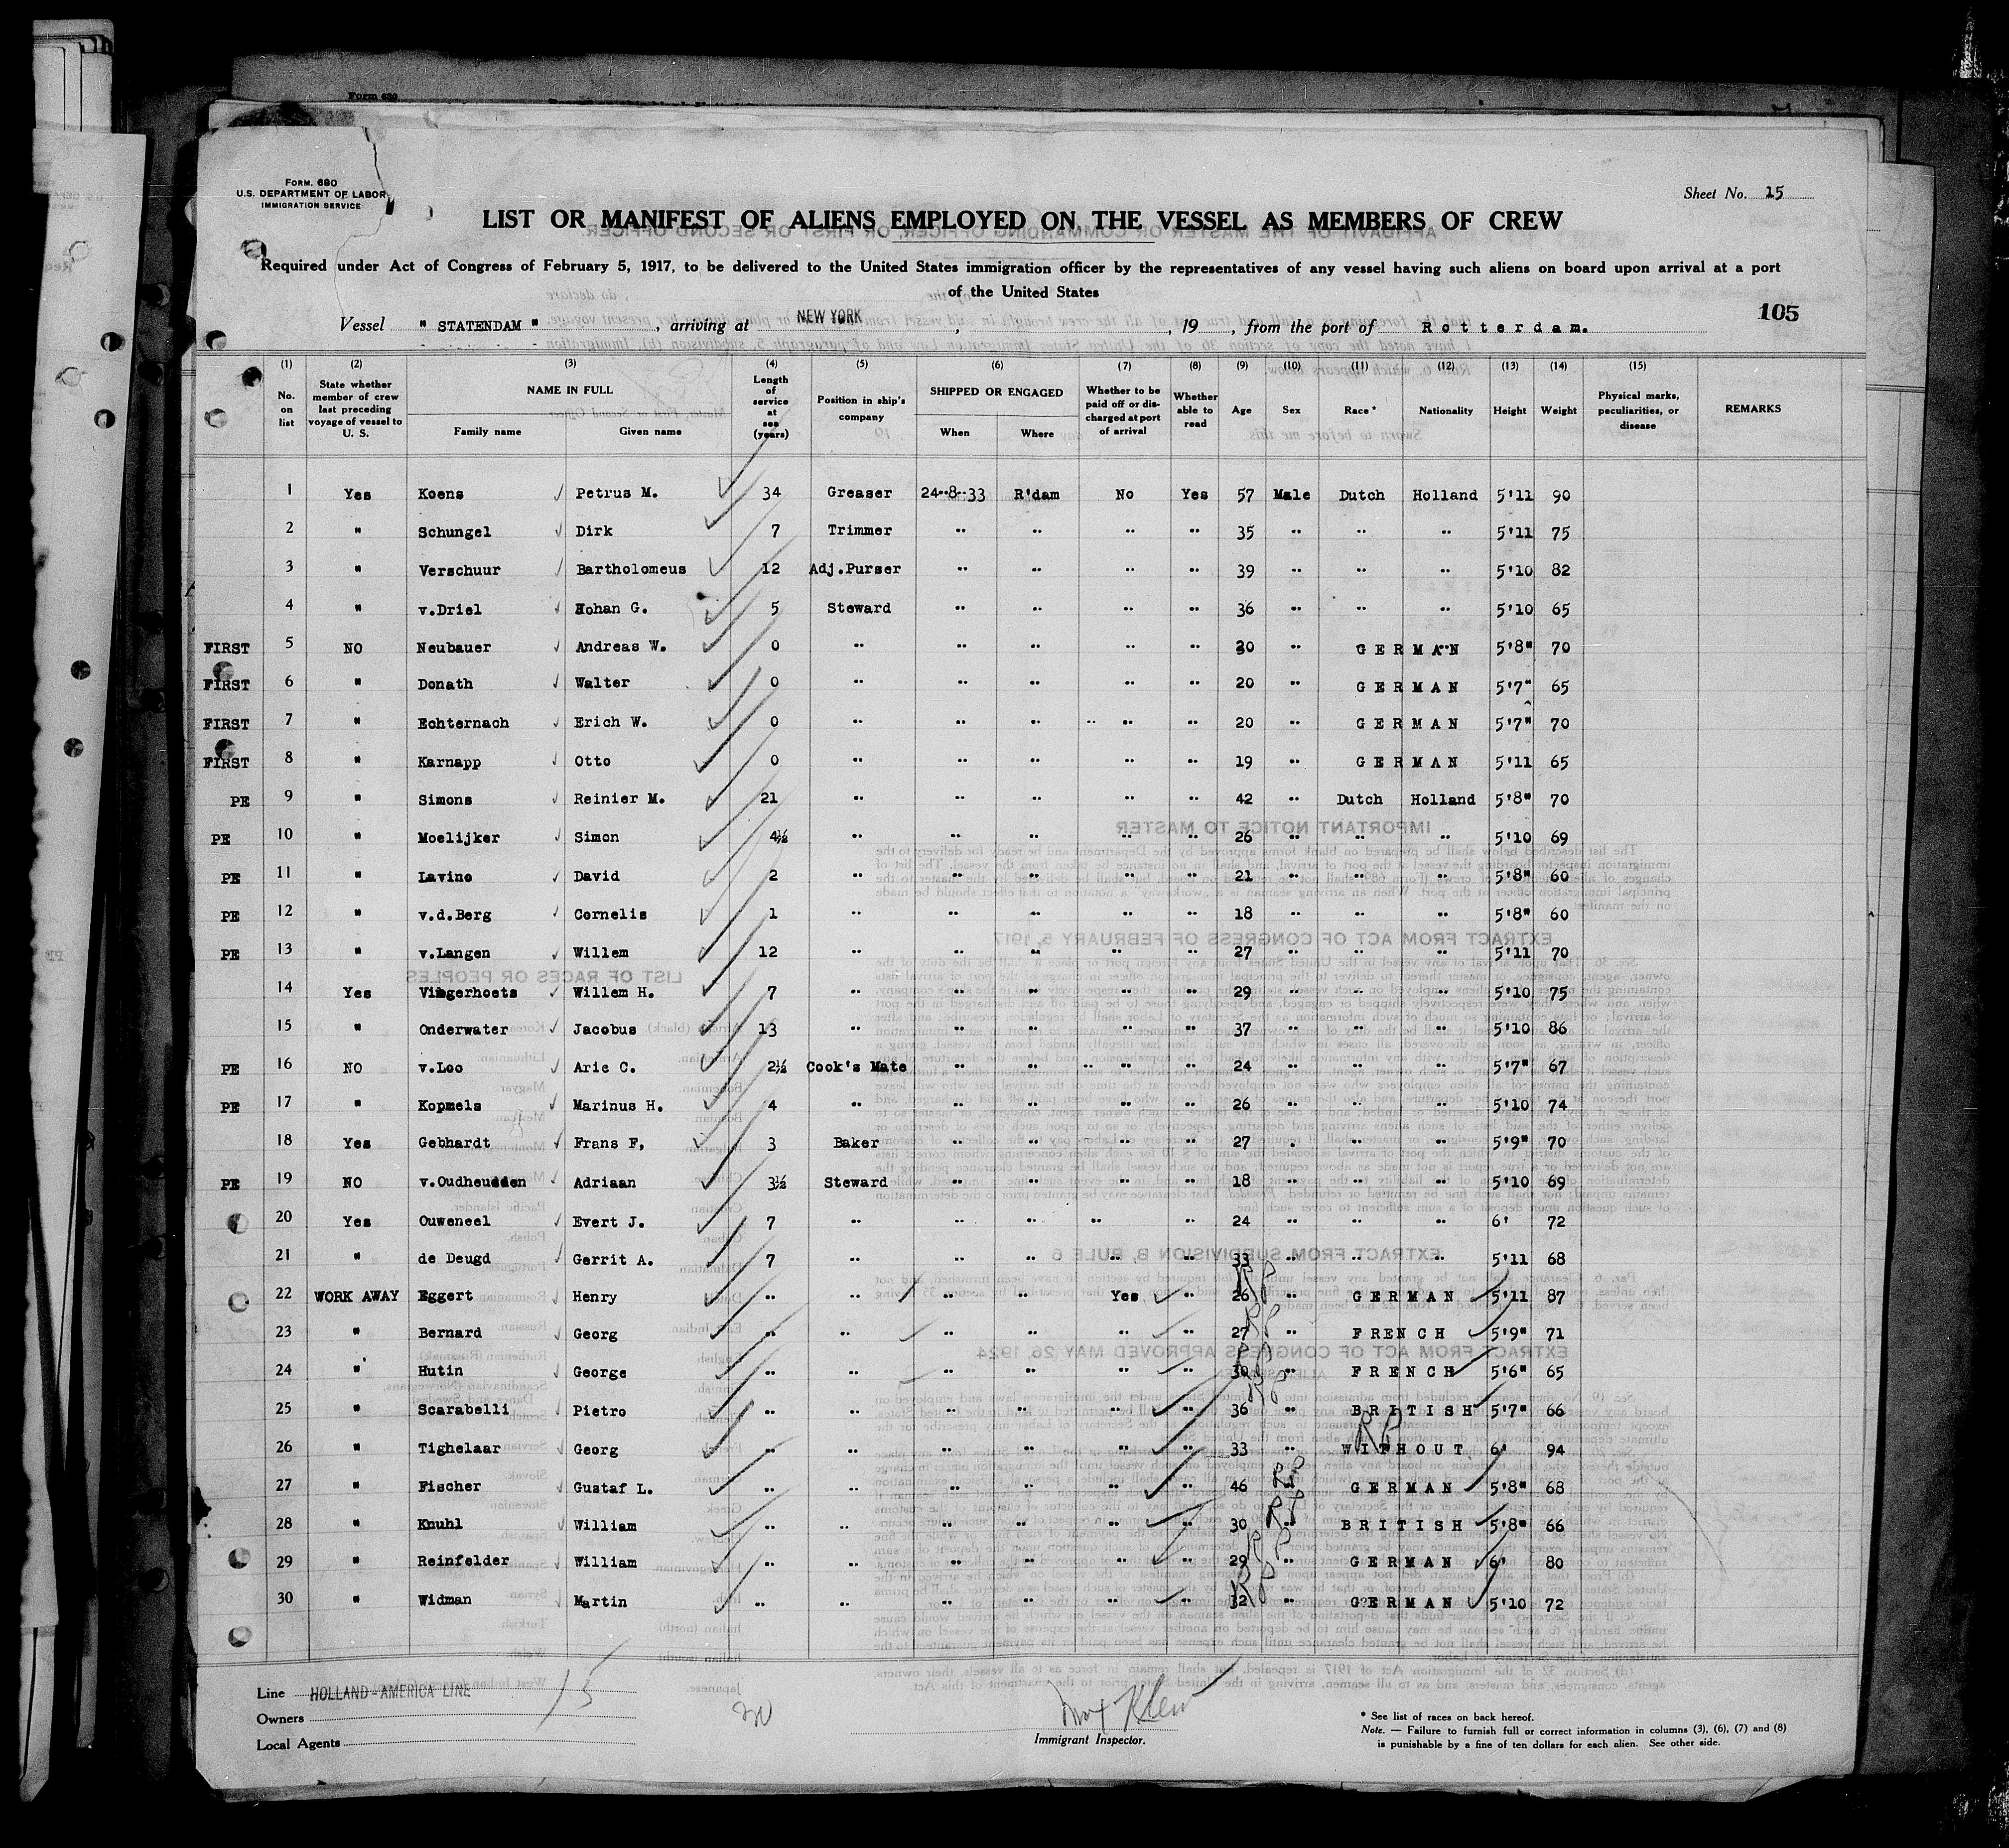 FORM. 680
U.S. DEPARTMENT OF LABOR
IMMIGRATION SERVICE
Sheet No. 15
LIST OR MANIFEST OF ALIENS EMPLOYED ON THE VESSEL AS MEMBERS OF CREW
Required under Act of Congress of February 5, 1917, to be delivered to the United States immigration officer by the representatives of any vessel having such aliens on board upon arrival at a port
of the United States
105
Vessel " STATENDAM " , arriving at NEW YORK , , 19 , from the port of Rotterdam.
(1) (2) (3) (4) (5) (6) (7) (8) (9) (10) (11) (12) (13) (14) (15)
No. on list State whether member of crew last preceding voyage of vessel to U. S. NAME IN FULL Length of service at sea (years) Position in ship's company SHIPPED OR ENGAGED Whether to be paid off or discharged at port of arrival Whether able to read Age Sex Race* Nationality Height Weight Physical marks, peculiarities, or disease REMARKS
Family name Given name When Where
1 Yes Koens Petrus M. 34 Greaser 24-8-33 R'dam No Yes 57 Male Dutch Holland 5'11 90
2 " Schungel Dirk 7 Trimmer " " " " 35 " " " 5'11 75
3 " Verschuur Bartholomeus 12 Adj.Purser " " " " 39 " " " 5'10 82
4 " v.Driel Johan G. 5 Steward " " " " 36 " " " 5'10 65
FIRST 5 NO Neubauer Andreas W. 0 " " " " " 20 " GERMAN 5'8" 70
FIRST 6 " Donath Walter 0 " " " " " 20 " GERMAN 5'7" 65
FIRST 7 " Echternach Erich W. 0 " " " " " 20 " GERMAN 5'7" 70
FIRST 8 " Karnapp Otto 0 " " " " " 19 " GERMAN 5'11 65
PE 9 " Simons Reinier M. 21 " " " " " 42 " Dutch Holland 5'8" 70
PE 10 " Moelijker Simon 4½ " " " " " 26 " " " 5'10 69
PE 11 " Lavine David 2 " " " " " 21 " " " 5'8" 60
PE 12 " v.d.Berg Cornelis 1 " " " " " 18 " " " 5'8" 60
PE 13 " v.Langen Willem 12 " " " " " 27 " " " 5'11 70
14 Yes Vingerhoets Willem H. 7 " " " " " 29 " " " 5'10 75
15 " Onderwater Jacobus 13 " " " " " 37 " " " 5'10 86
PE 16 NO v.Loo Arie C. 2½ Cook's Mate " " " " 24 " " " 5'7" 67
PE 17 " Kopmels Marinus H. 4 " " " " " 26 " " " 5'10 74
18 Yes Gebhardt Frans F, 3 Baker " " " " 27 " " " 5'9" 70
PE 19 NO v.Oudheudden Adriaan 3½ Steward " " " " 18 " " " 5'10 69
20 Yes Ouweneel Evert J. 7 " " " " " 24 " " " 6' 72
21 " de Deugd Gerrit A. 7 " " " " " 33 " " " 5'11 68
22 WORK AWAY Eggert Henry " " " " Yes " 26 " GERMAN 5'11 87
23 " Bernard Georg " " " " " " 27 " FRENCH 5'9" 71
24 " Hutin George " " " " " " 30 " FRENCH 5'6" 65
25 " Scarabelli Pietro " " " " " " 36 " BRITISH 5'7" 66
26 " Tighelaar Georg " " " " " " 33 " WITHOUT 6' 94
27 " Fischer Gustaf L. " " " " " " 46 " GERMAN 5'8" 68
28 " Knuhl William " " " " " " 30 " BRITISH 5'8" 66
29 " Reinfelder William " " " " " " 29 " GERMAN 6' 80
30 " Widman Martin " " " " " " 32 " GERMAN 5'10 72
Line HOLLAND-AMERICA LINE
15
Owners
Local Agents
Immigrant Inspector.
* See list of races on back hereof.
Note. — Failure to furnish full or correct information in columns (3), (6), (7) and (8)
is punishable by a fine of ten dollars for each alien. See other side.